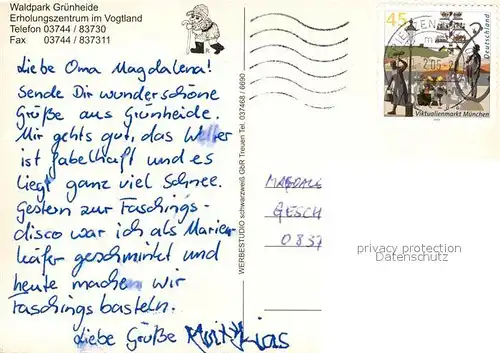 Waldpark Grünheide
Erholungszentrum im Vogtland
Telefon 03744 / 83730
Fax 03744 / 837311
Liebe Oma Magdalena!
Sende Dir wunderschöne
Grüße aus Grünheide.
Mir gehts gut, das Wetter
ist fabelhaft und es
liegt ganz viel Schnee.
Gestern zur Faschings-
disco war ich als Marien-
käfer geschminkt und
heute machen wir
Faschings basteln.
Liebe Grüße
WERBESTUDIO schwarzweiß GbR Treuen Tel. 037468 / 6690
45
Deutschland
Viktualienmarkt München
MAGDALE
GESCH
0837
privacy protection
Datenschutz